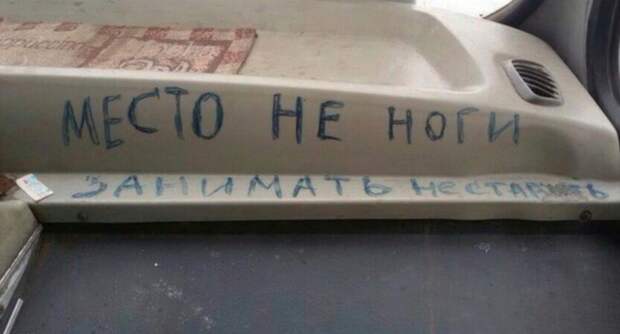 МЕСТО НЕ НОГИ
ЗАНИМАТЬ НЕ СТАВИТЬ